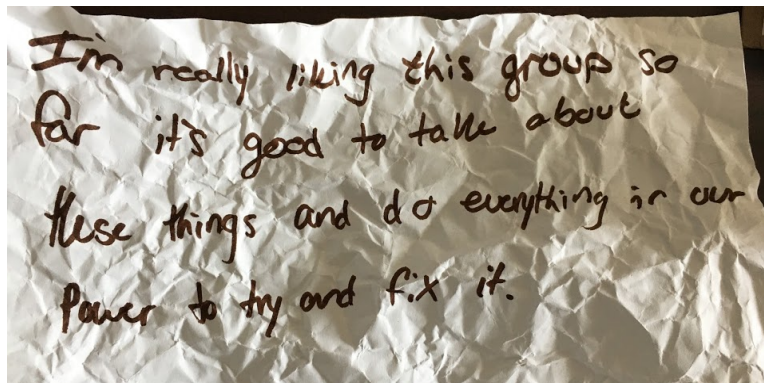 I'm really liking this group so
far it's good to talk about
these things and do everything in our
power to try and fix it.